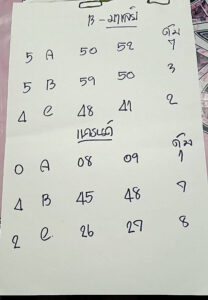 B - มาเลย์
ดับ
5 A 50 52 7
5 B 59 50 3
4 C 48 41 2
แคนดี้
ดับ
0 A 08 09 1
4 B 45 48 7
2 C 26 27 8